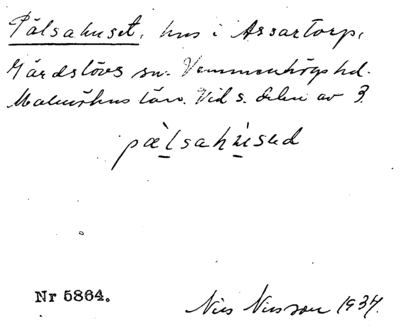 Pälsahuset, hus i Assartorp,
Gärdslövs sn. Vemmenhögs hd.
Malmöhus län. Vid s. delen av 3.
pæ̀lsahùsəd
Nr 5864.
Nils Nilsson 1937.